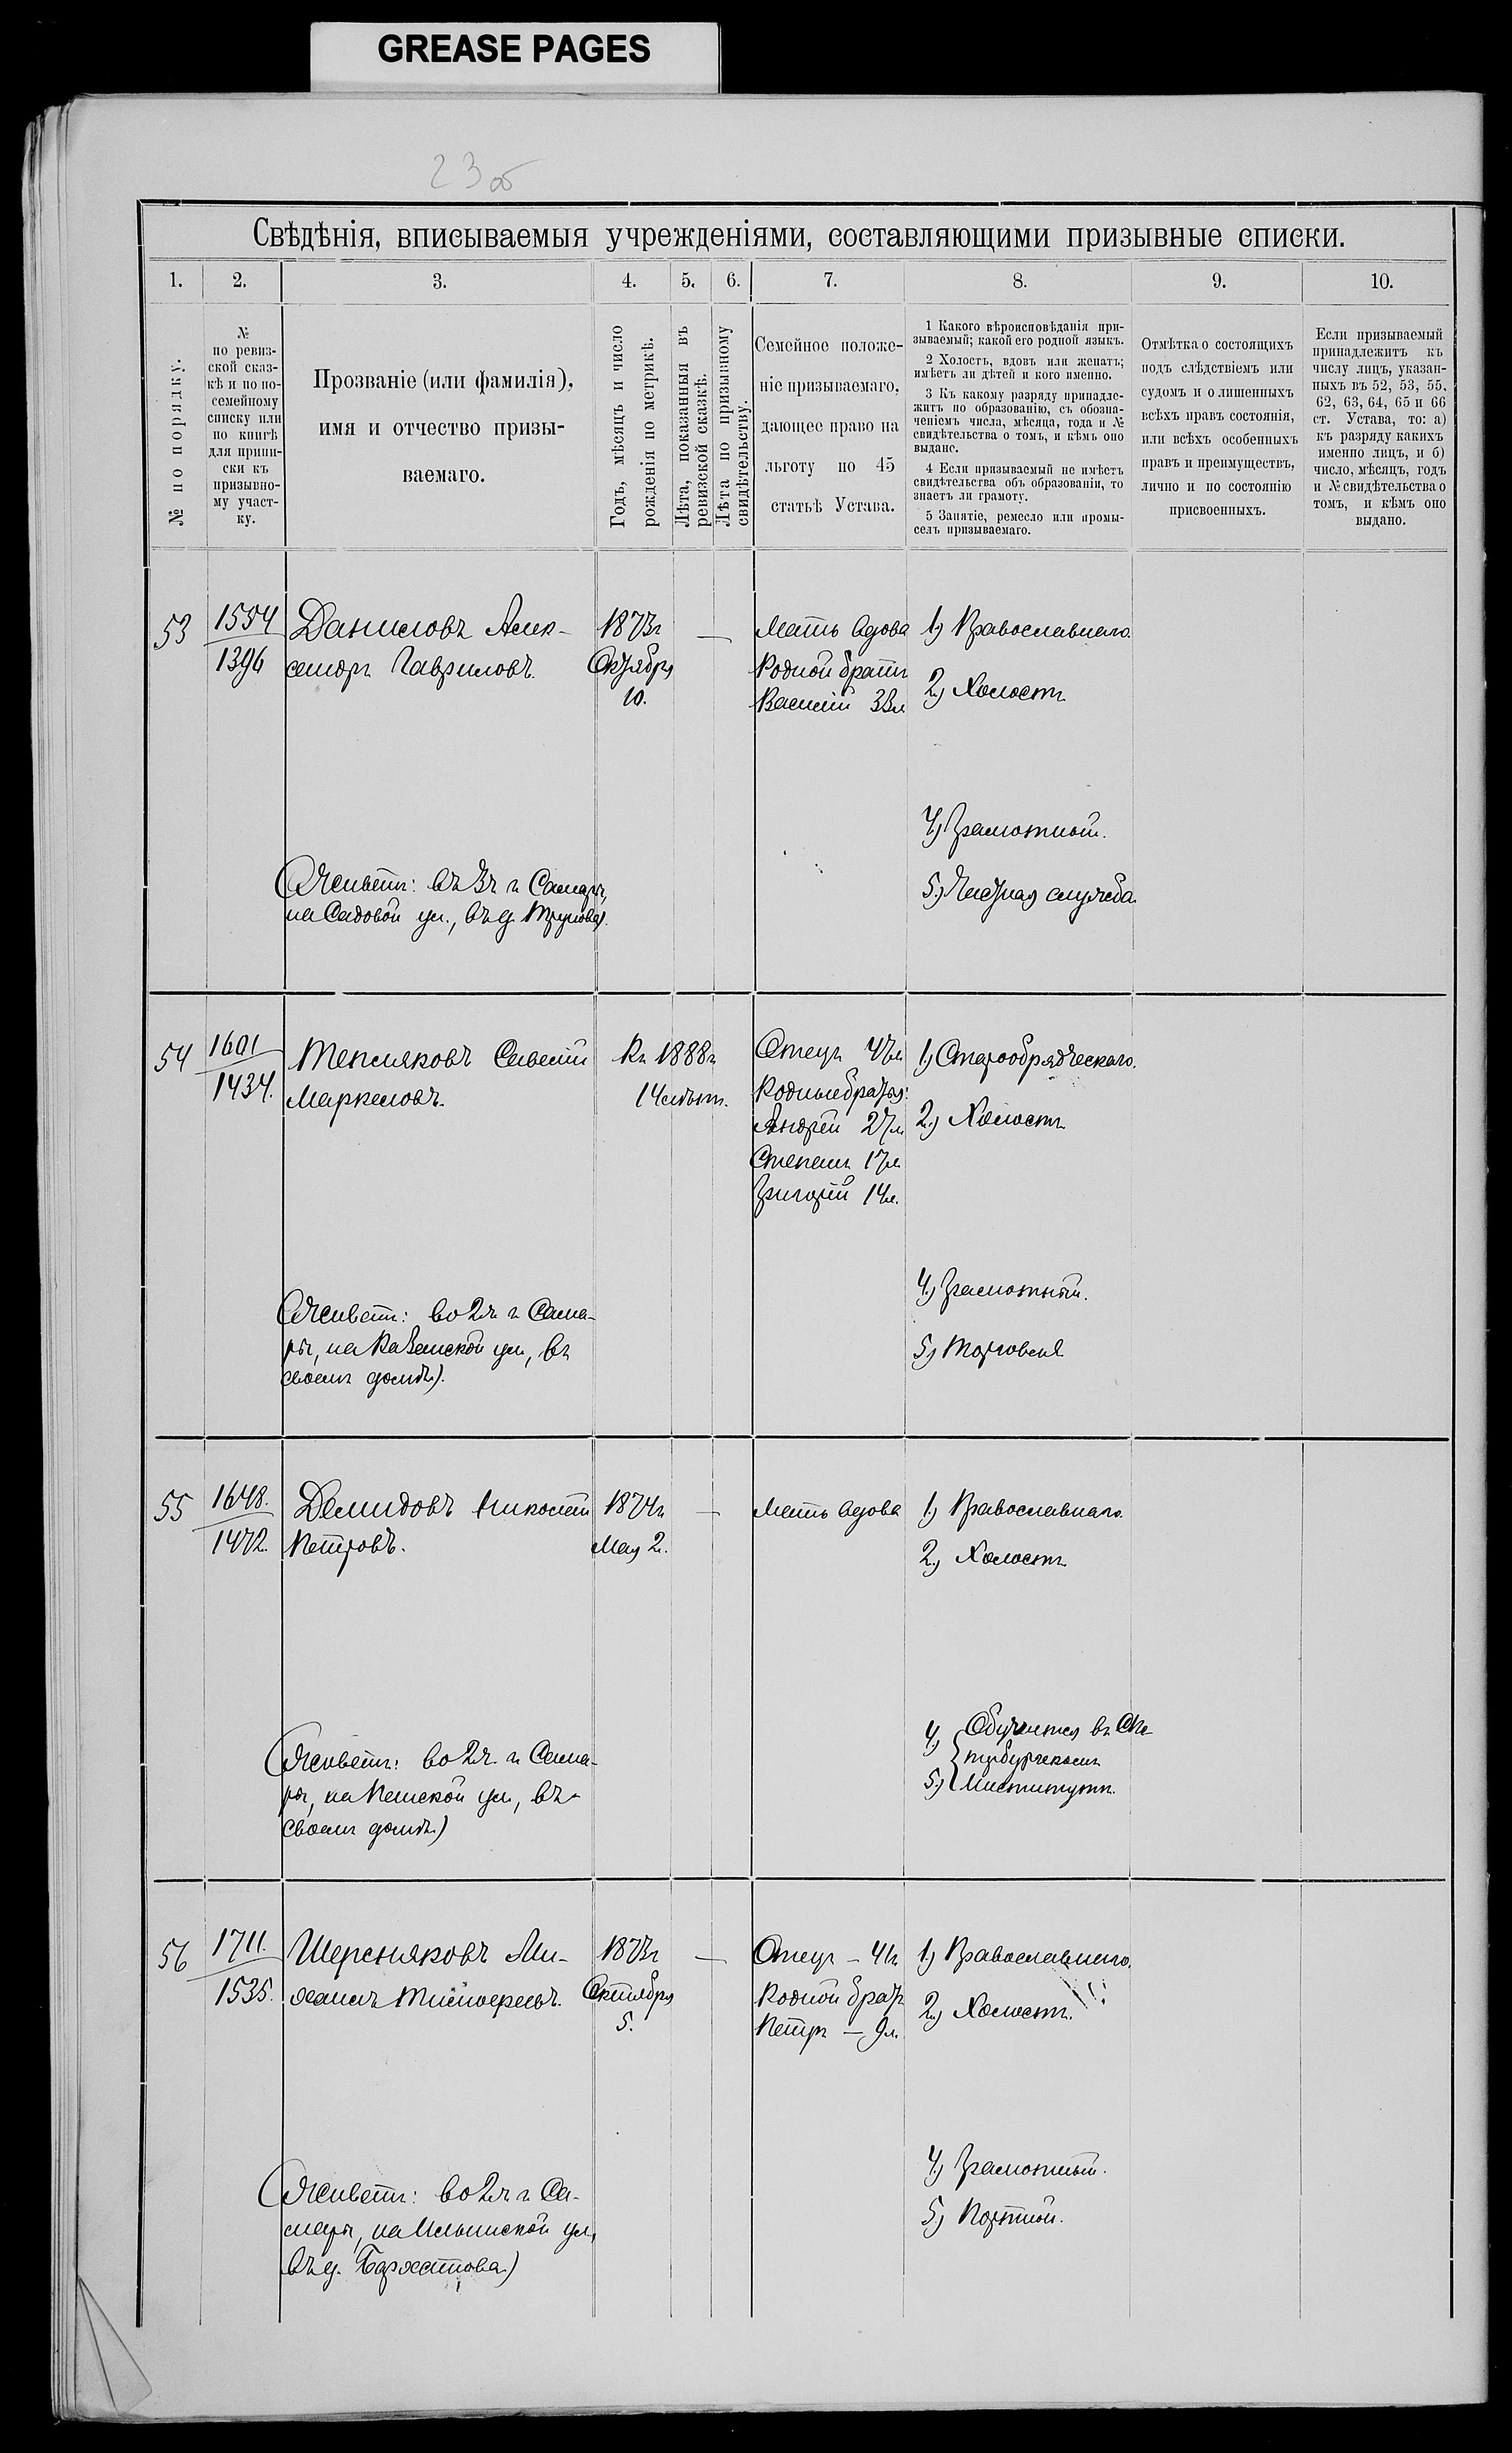 GREASE PAGES
23 об
Свѣдѣнія, вписываемыя учрежденіями, составляющими призывные списки.
1. 2. 3. 4. 5. 6. 7. 8. 9. 10.
№ по порядку.
№
по ревиз-
ской сказ-
кѣ и по по-
семейному
списку или
по книгѣ
для припи-
ски къ
призывно-
му участ-
ку.
Прозваніе (или фамилія),
имя и отчество призы-
ваемаго.
Годъ, мѣсяцъ и число
рожденія по метрикѣ.
Лѣта, показанныя въ
ревизской сказкѣ.
Лѣта по призывному
свидѣтельству.
Семейное положе-
ніе призываемаго,
дающее право на
льготу по 45
статьѣ Устава.
1 Какого вѣроисповѣданія при-
зываемый; какой его родной языкъ.
2 Холостъ, вдовъ или женатъ;
имѣетъ ли дѣтей и кого именно.
3 Къ какому разряду принадле-
житъ по образованію, съ обозна-
ченіемъ числа, мѣсяца, года и №
свидѣтельства о томъ, и кѣмъ оно
выдано.
4 Если призываемый не имѣетъ
свидѣтельства объ образованіи, то
знаетъ ли грамоту.
5 Занятіе, ремесло или промы-
селъ призываемаго.
Отмѣтка о состоящихъ
подъ слѣдствіемъ или
судомъ и о лишенныхъ
всѣхъ правъ состоянія,
или всѣхъ особенныхъ
правъ и преимуществъ,
лично и по состоянію
присвоенныхъ.
Если призываемый
принадлежитъ къ
числу лицъ, указан-
ныхъ въ 52, 53, 55,
62, 63, 64, 65 и 66
ст. Устава, то: а)
къ разряду какихъ
именно лицъ, и б)
число, мѣсяцъ, годъ
и № свидѣтельства о
томъ, и кѣмъ оно
выдано.
53
1554
1396
Даниловъ Алек-
сандръ Гавриловъ.
1873г
Октября
10.
—
Мать вдова
Родной братъ
Василій 33л
1) Православнаго.
2) Холостъ
4) Грамотный.
5) Частная служба.
(Живетъ: въ 3ч г Самары,
на Садовой ул., въ д.
54
1601
1434.
Тепляковъ Савелій
Маркеловъ.
Къ 1888г
14 лѣтъ.
Отецъ 47л
Родные братья:
Андрей 27л
Степанъ 17л
Григорій 14л.
1) Старообрядческаго.
2) Холостъ
4) Грамотный.
5) Торговля
(Живетъ: во 2ч. г Сама-
ры, на Казанской ул, въ
своемъ домѣ).
55
1648.
1472.
Демидовъ Николай
Петровъ.
1874г
Мая 2.
—
Мать вдова
1) Православнаго.
2) Холостъ
4)
5)
Обучается въ С.Пе-
тербургскомъ
Институтѣ.
(Живетъ: во 2ч. г Сама-
ры, на Панской ул, въ
своемъ домѣ)
56
1711.
1535.
Шерстняковъ Ми-
хаилъ
1873г
Октября
5.
—
Отецъ — 41г
Родной братъ
Петръ — 9л.
1) Православнаго.
2) Холостъ.
4) Грамотный.
5) Портной.
(Живетъ: во 2ч г Са-
мары, на Ильинской ул,
въ д. Бархатова)